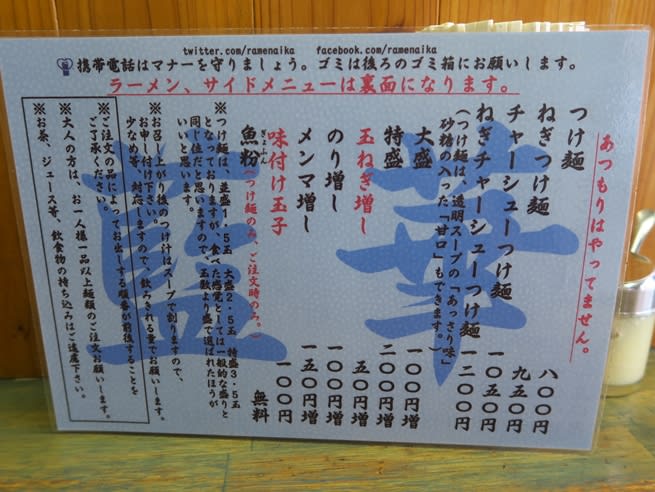 twitter.com/ramenaika facebook.com/ramenaika
携帯電話はマナーを守りましょう。ゴミは後ろのゴミ箱にお願いします。
ラーメン、サイドメニューは裏面になります。
あつもりはやってません。
つけ麺 八〇〇円
ねぎつけ麺 九五〇円
チャーシューつけ麺 一〇五〇円
ねぎチャーシューつけ麺 一二〇〇円
(つけ麺は、透明スープの「あっさり味」
砂糖の入った「甘口」もできます。)
大盛 一〇〇円増
特盛 二〇〇円増
玉ねぎ増し 五〇円増
のり増し 一〇〇円増
メンマ増し 一五〇円増
味付け玉子 一〇〇円
魚粉(つけ麺のみ、ご注文時のみ。) 無料
ぎょふん
※つけ麺は、並盛1・5玉 大盛2・5玉 特盛3・5玉
となっておりますが、食べた感覚としては一般的な盛りと
同じ位だと思いますので、玉数より盛で選ばれたほうが
いいと思います。
※お召し上がり後のつけ汁はスープで割りますので、
お申し付け下さい。飲みきれる量でお願いします。
少なめ等、対応しますので、
※ご注文の品によってお出しする順番が前後することを
ご了承ください。
※大人の方は、お一人様一品以上麺類のご注文お願いします。
※お茶、ジュース等、飲食物の持ち込みはご遠慮下さい。
藍華